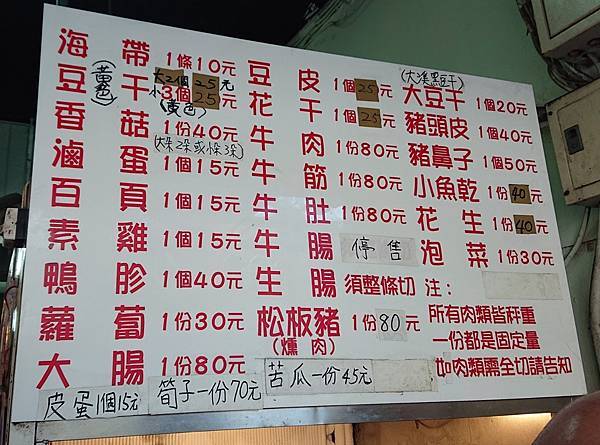 海帶 1條10元
豆干(黃色) 大2個25元
小3個25元
(黃色)
香菇 1份40元
(大朵2朵或小朵3朵)
滷蛋 1個15元
百頁 1個15元
素雞 1個15元
鴨胗 1個40元
蘿蔔 1份30元
大腸 1份80元
皮蛋1個15元
筍子一份70元
豆皮 1個25元
花干 1個25元
牛肉 1份80元
牛筋 1份80元
牛肚 1份80元
牛腸 停售
生腸 須整條切
松板豬 1份80元
(燻肉)
苦瓜一份45元
(大溪黑豆干)
大豆干 1個20元
豬頭皮 1個40元
豬鼻子 1個50元
小魚乾 1份40元
花生 1份40元
泡菜 1份30元
注：
所有肉類皆秤重
一份都是固定量
如肉類需全切請告知